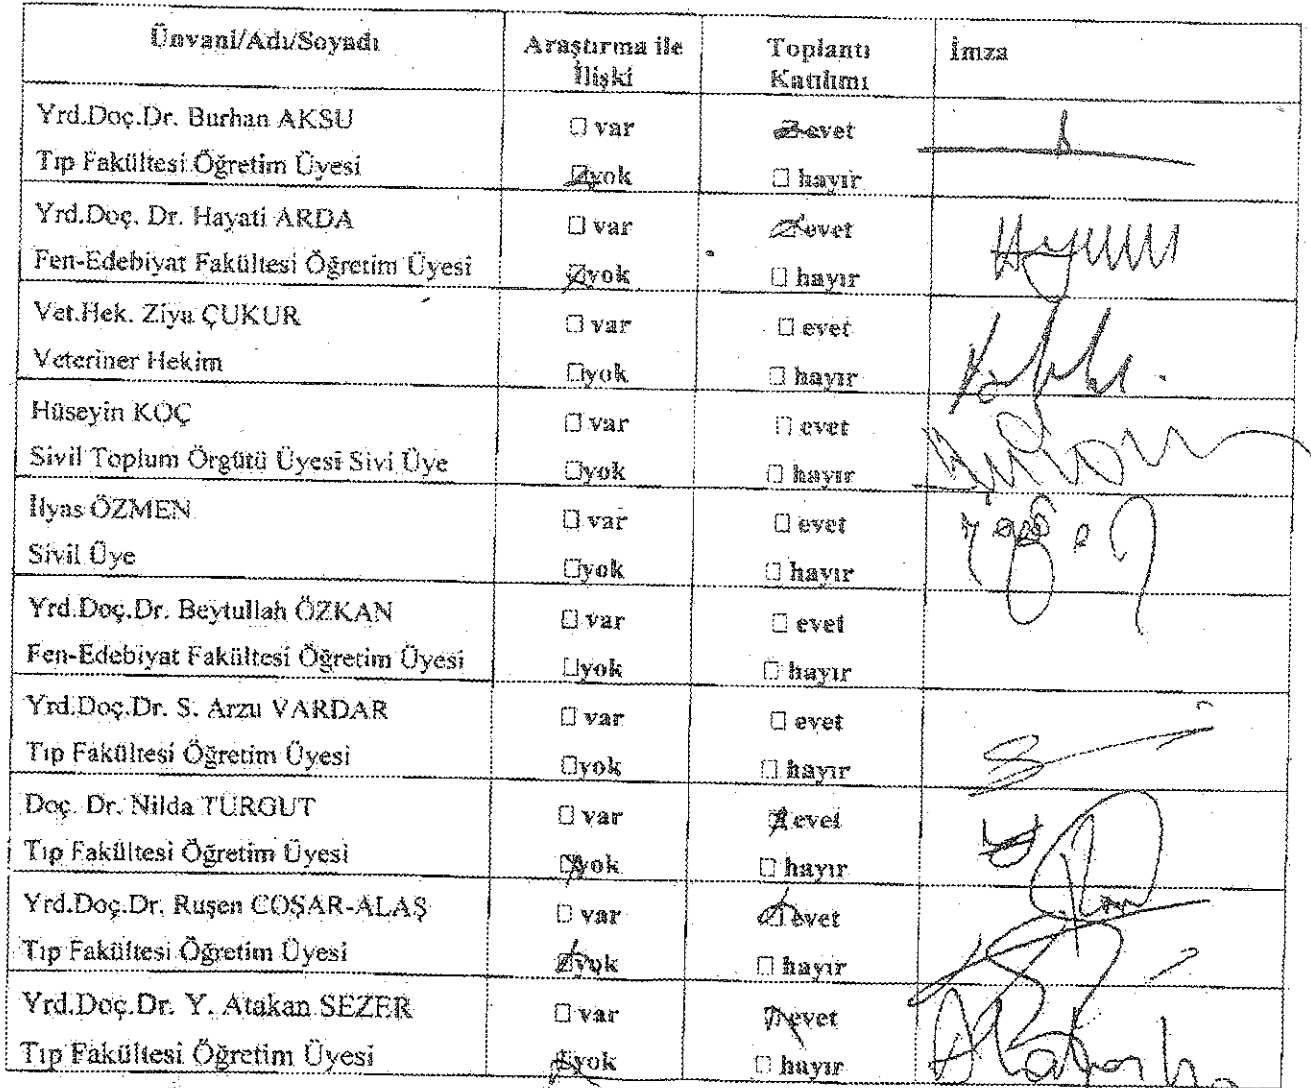 Ünvani/Adı/Soyadı
Araştırma ile İlişki
Toplantı Katılımı
İmza
Yrd.Doç.Dr. Burhan AKSU
Tıp Fakültesi Öğretim Üyesi
var
yok
evet
hayır
Yrd.Doç. Dr. Hayati ARDA
Fen-Edebiyat Fakültesi Öğretim Üyesi
var
yok
evet
hayır
Vet.Hek. Ziya ÇUKUR
Veteriner Hekim
var
yok
evet
hayır
Hüseyin KOÇ
Sivil Toplum Örgütü Üyesi Sivi Üye
var
yok
evet
hayır
İlyas ÖZMEN
Sivil Üye
var
yok
evet
hayır
Yrd.Doç.Dr. Beytullah ÖZKAN
Fen-Edebiyat Fakültesi Öğretim Üyesi
var
yok
evet
hayır
Yrd.Doç.Dr. S. Arzu VARDAR
Tıp Fakültesi Öğretim Üyesi
var
yok
evet
hayır
Doç. Dr. Nilda TURGUT
Tıp Fakültesi Öğretim Üyesi
var
yok
evet
hayır
Yrd.Doç.Dr. Ruşen COŞAR-ALAŞ
Tıp Fakültesi Öğretim Üyesi
var
yok
evet
hayır
Yrd.Doç.Dr. Y. Atakan SEZER
Tıp Fakültesi Öğretim Üyesi
var
yok
evet
hayır